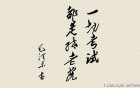 一切考试
都是纸老虎
毛泽东书